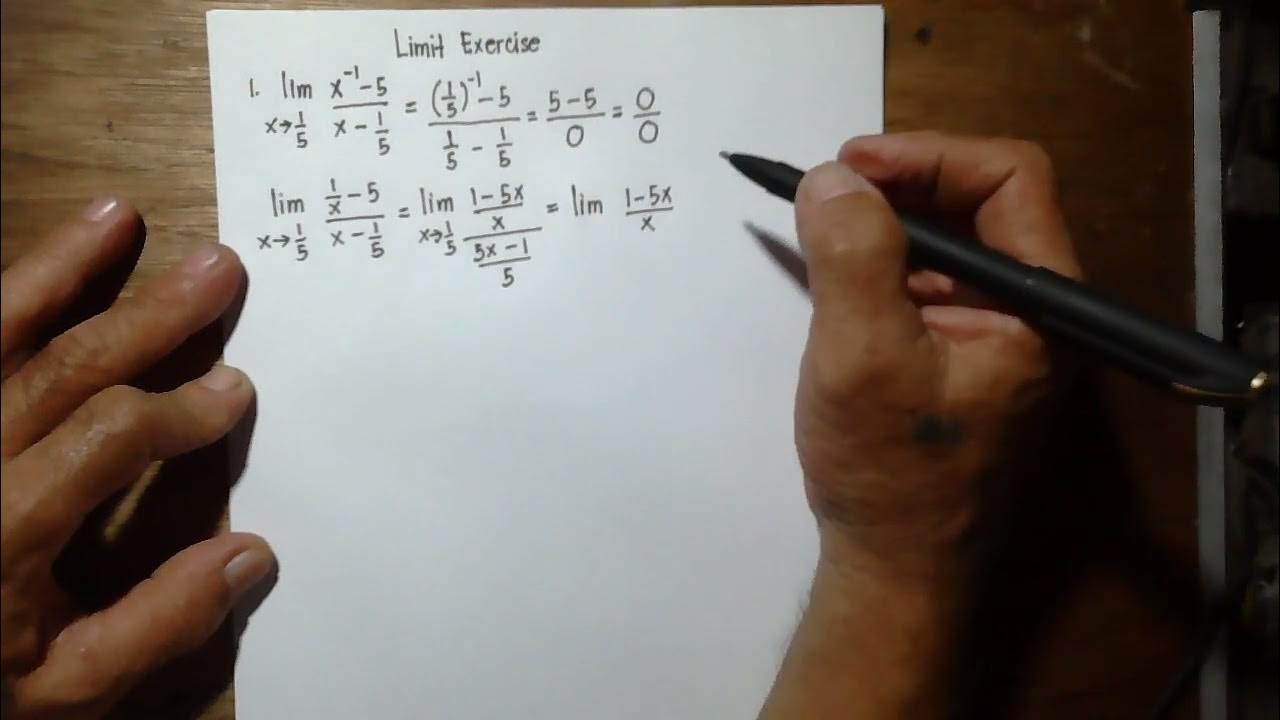 Limit Exercise
1. lim x→1/5 (x⁻¹ - 5)/(x - 1/5) = ((1/5)⁻¹ - 5)/(1/5 - 1/5) = (5 - 5)/0 = 0/0
lim x→1/5 (1/x - 5)/(x - 1/5) = lim x→1/5 ((1 - 5x)/x)/((5x - 1)/5) = lim (1 - 5x)/x